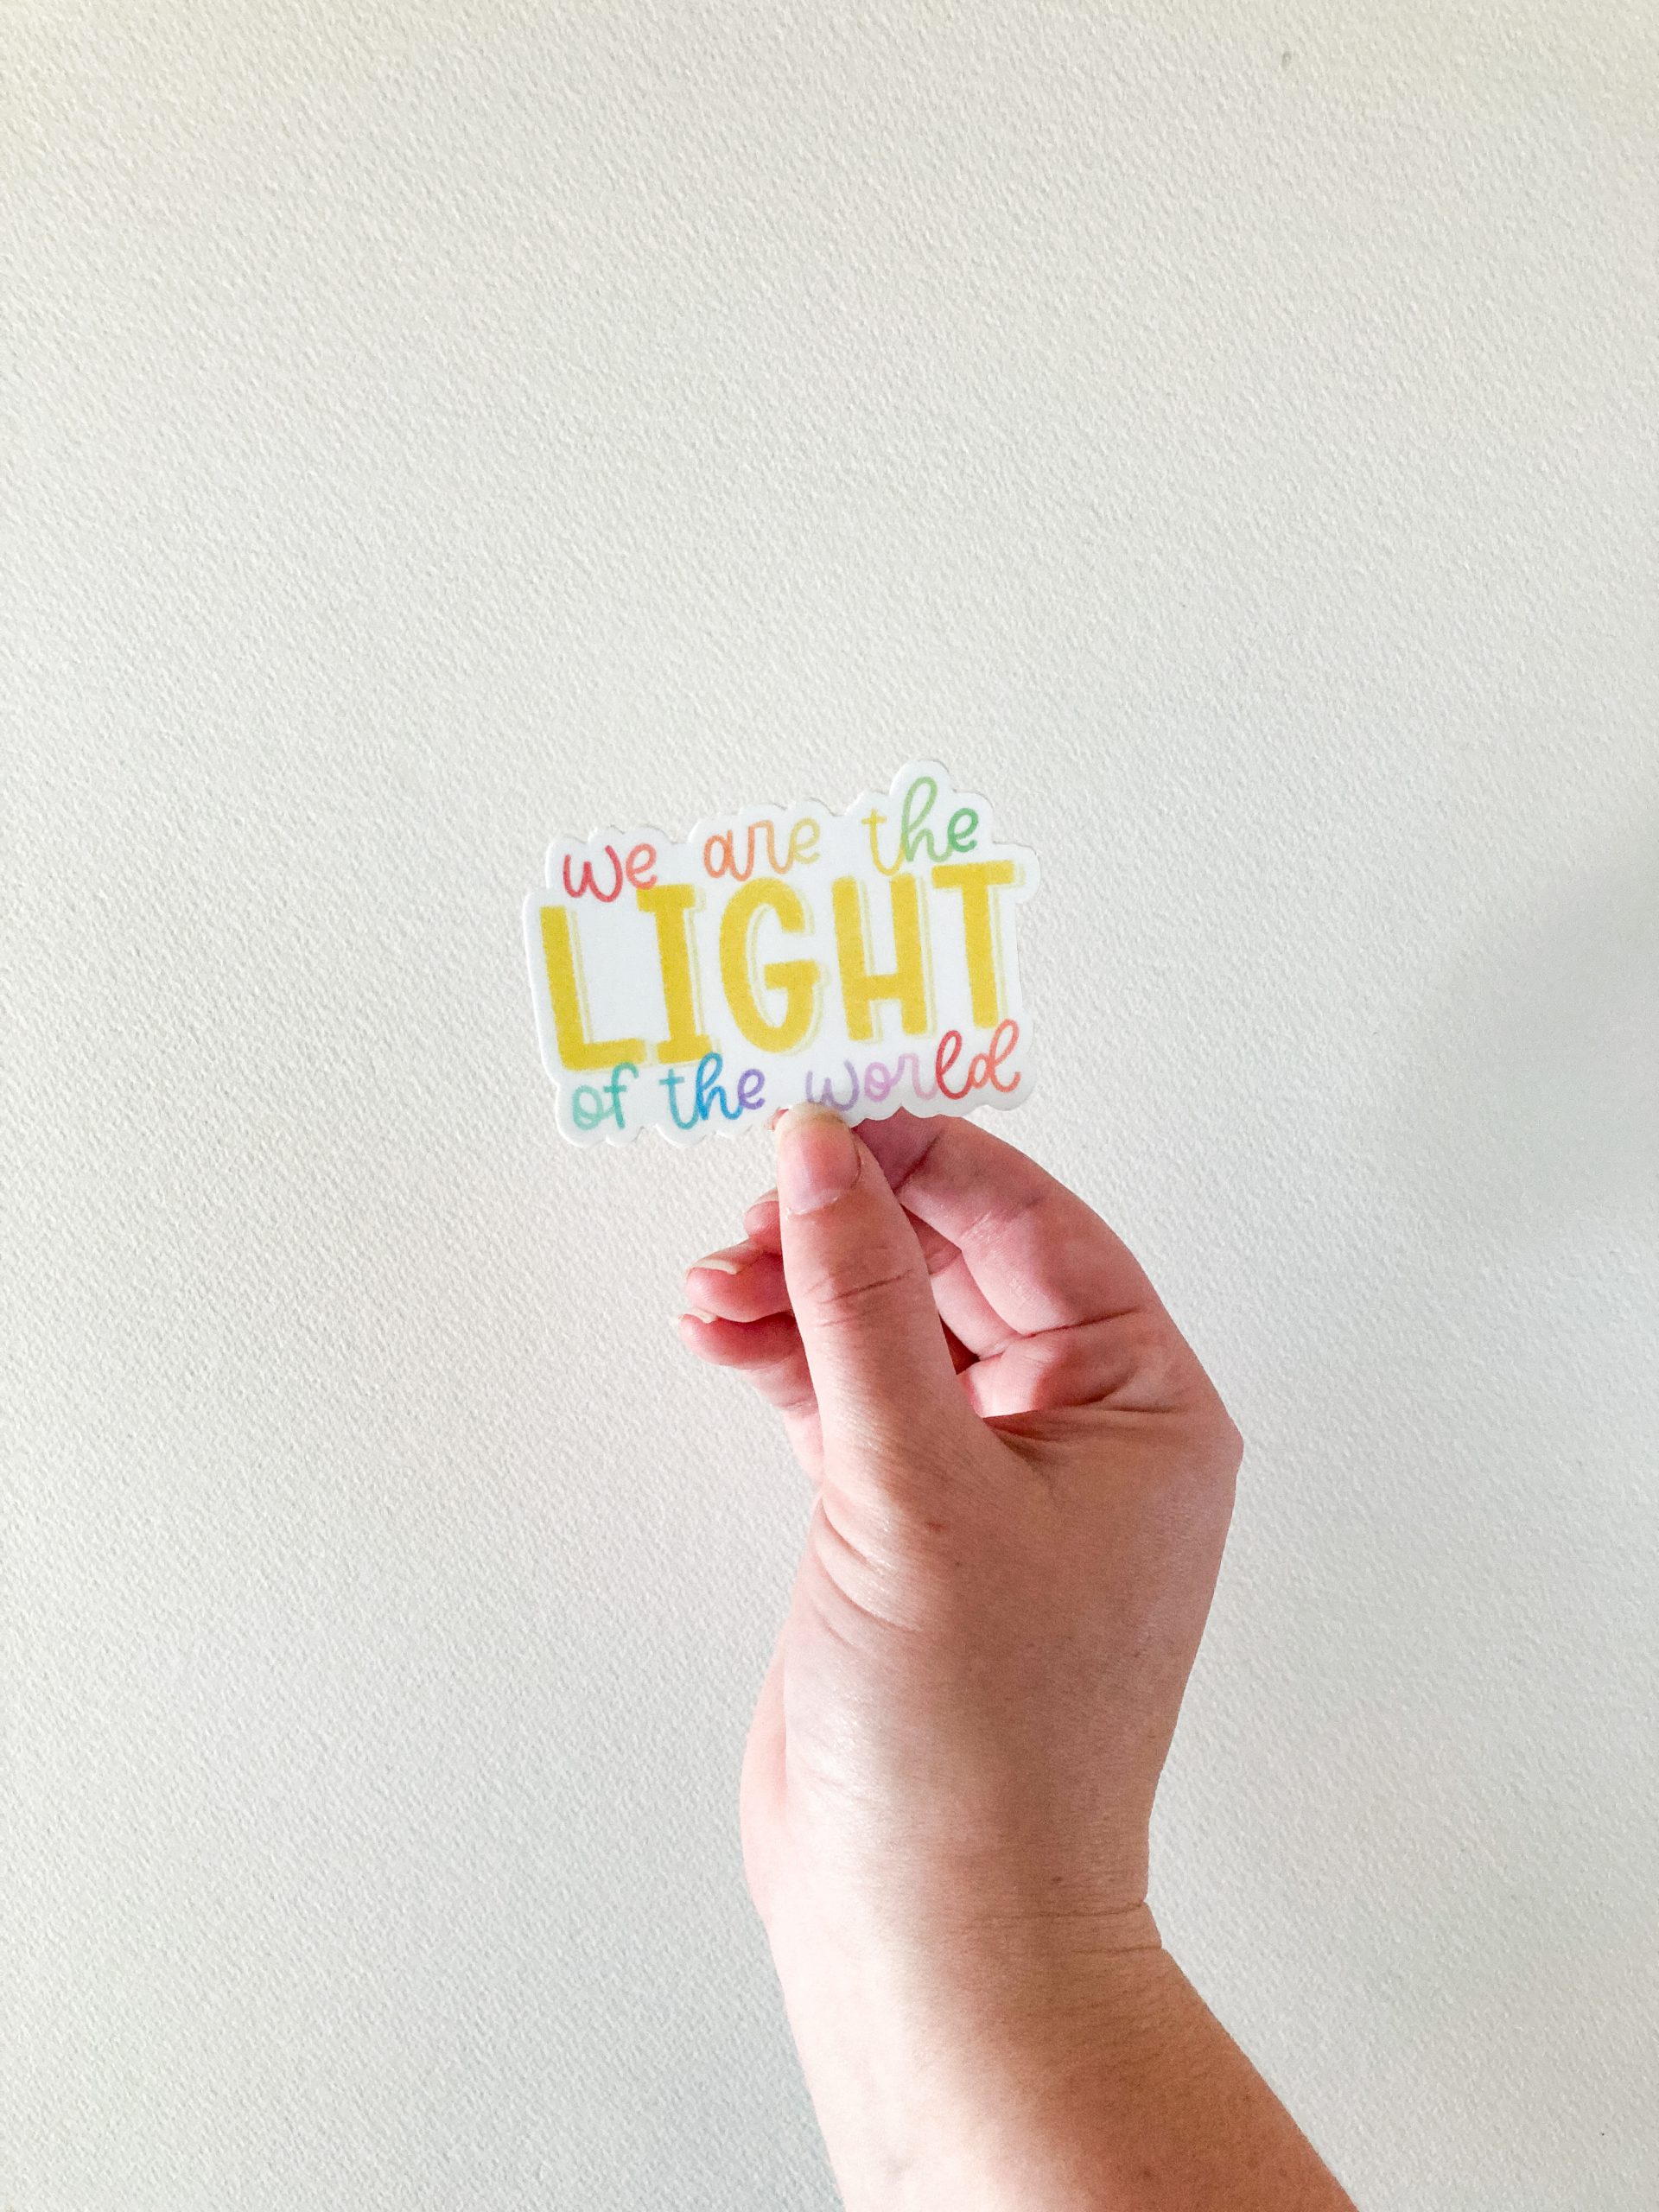 we are the
LIGHT
of the world